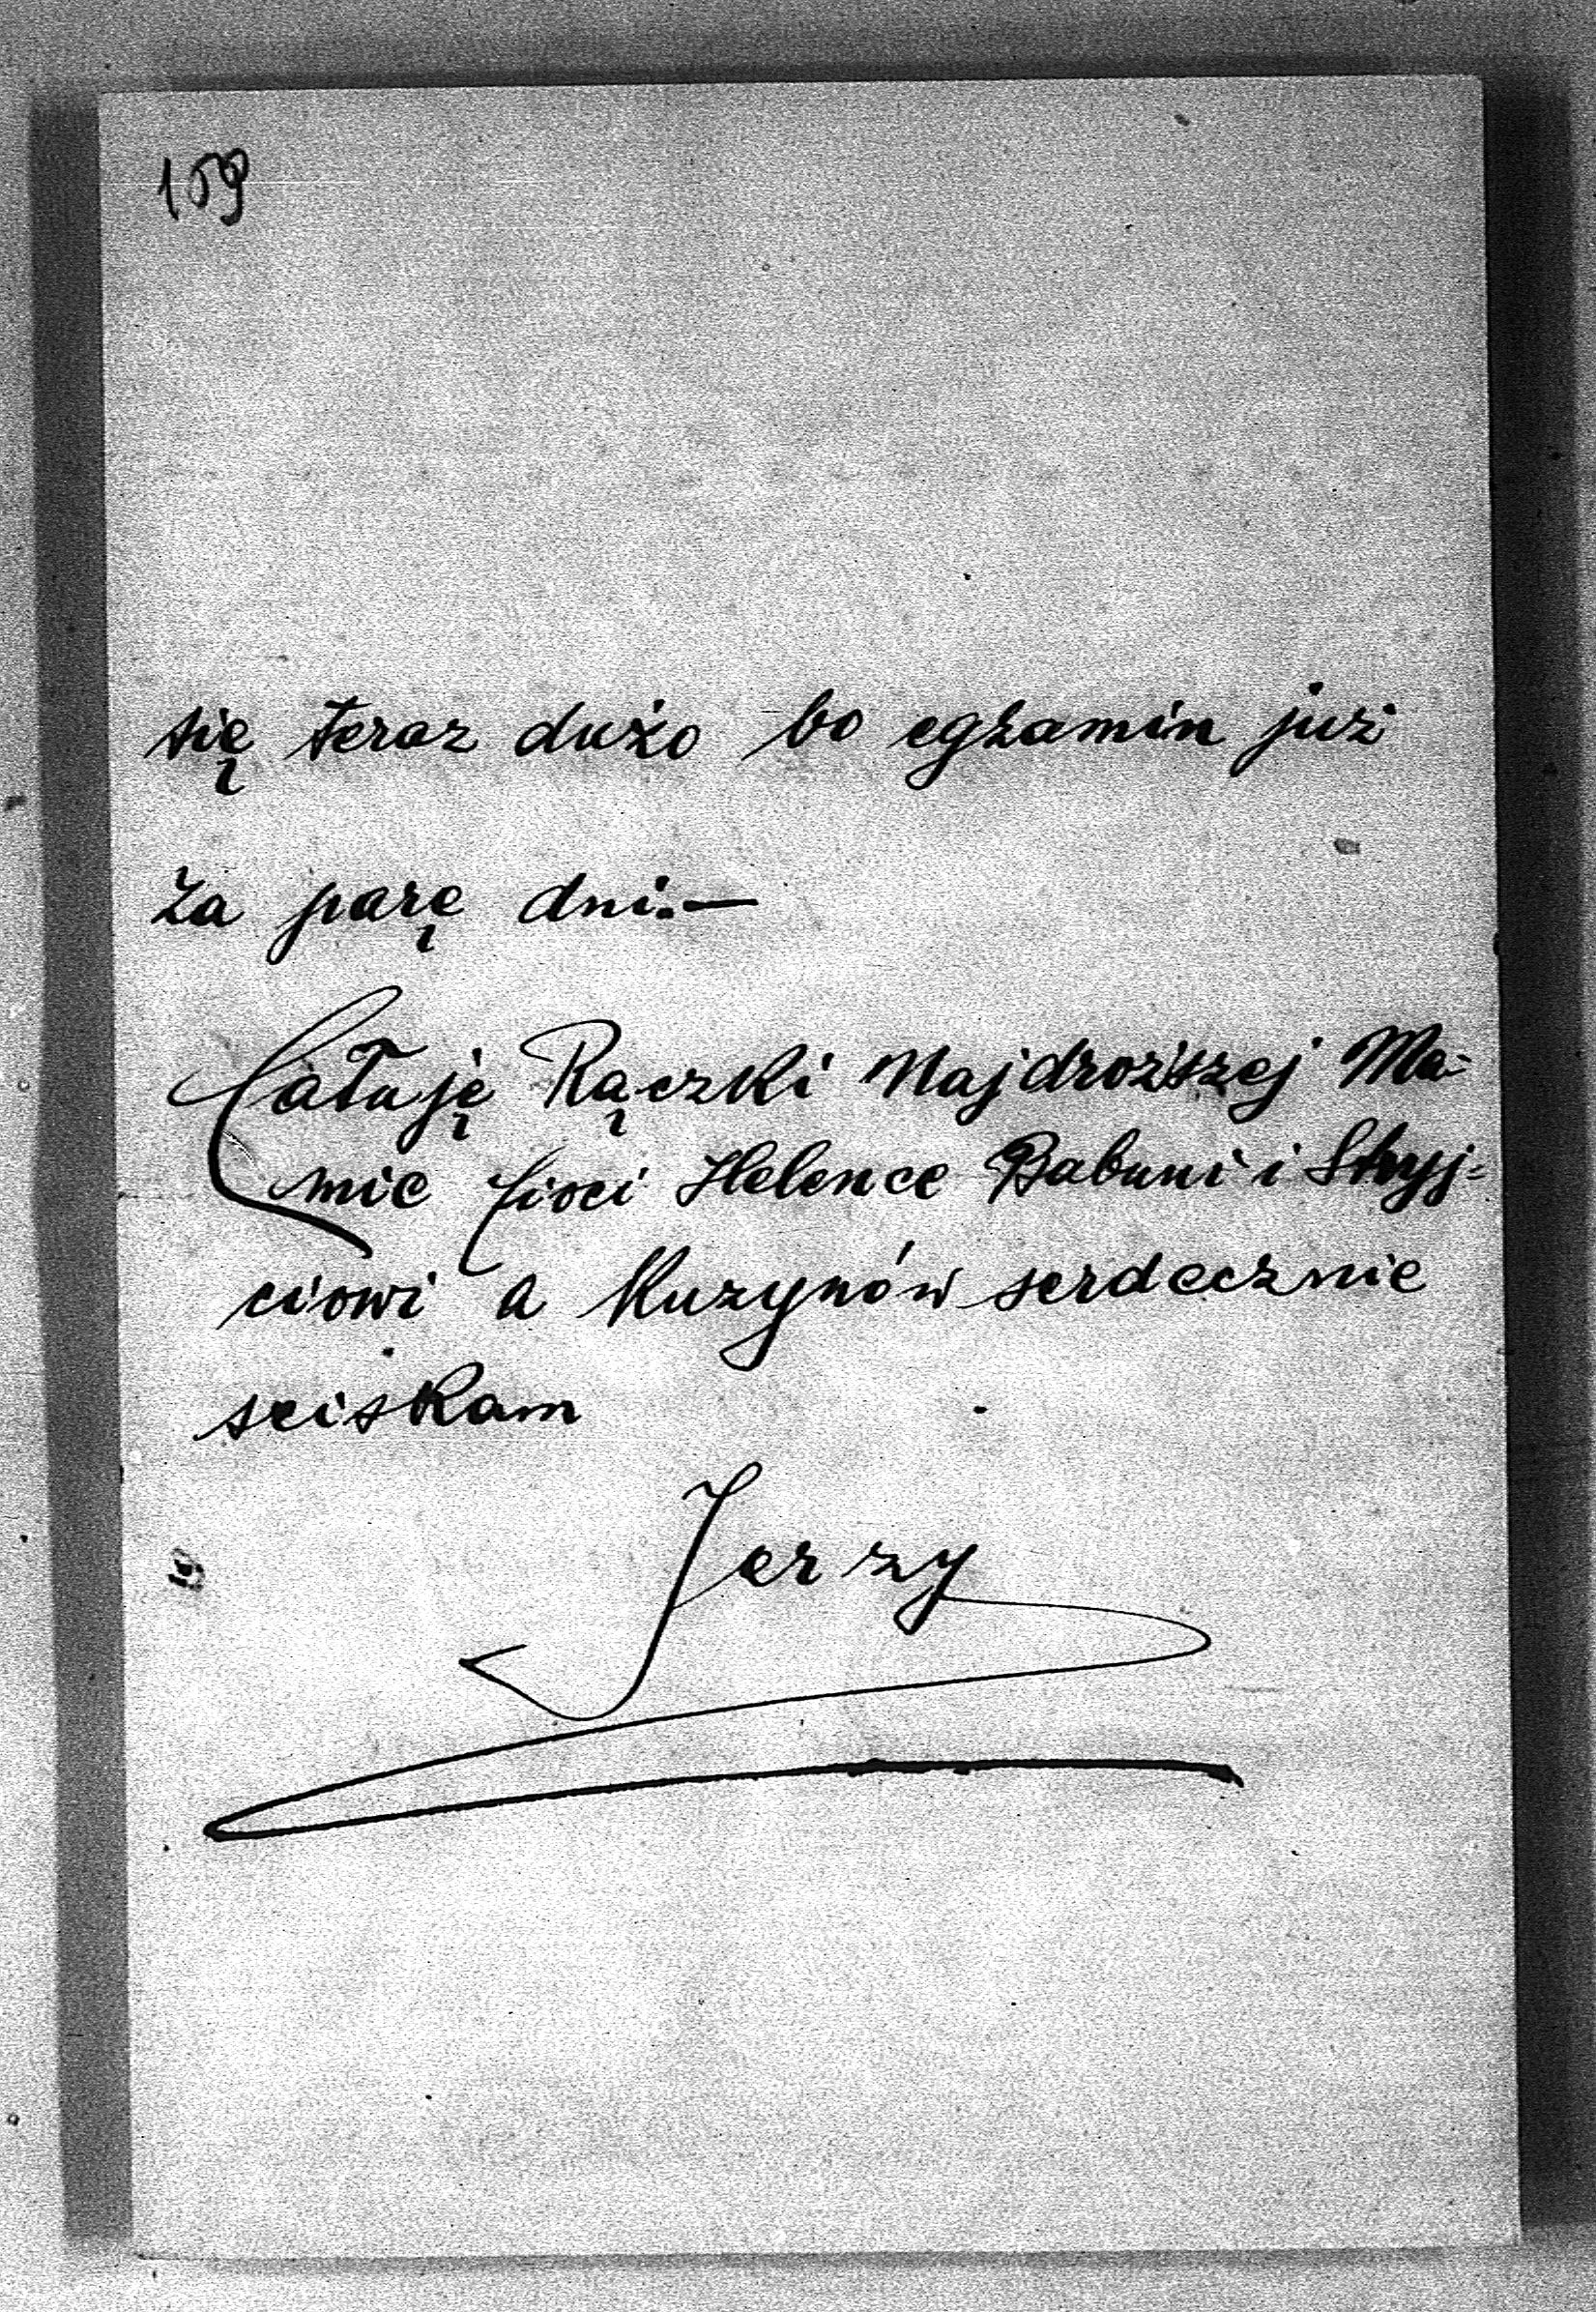 159
się teraz dużo bo egzamin już
za parę dni.—
Całuję Rączki Najdroższej Ma-
mie Cioci Helence Babuni i Stryj-
ciowi a Kuzynów serdecznie
sciskam
Jerzy